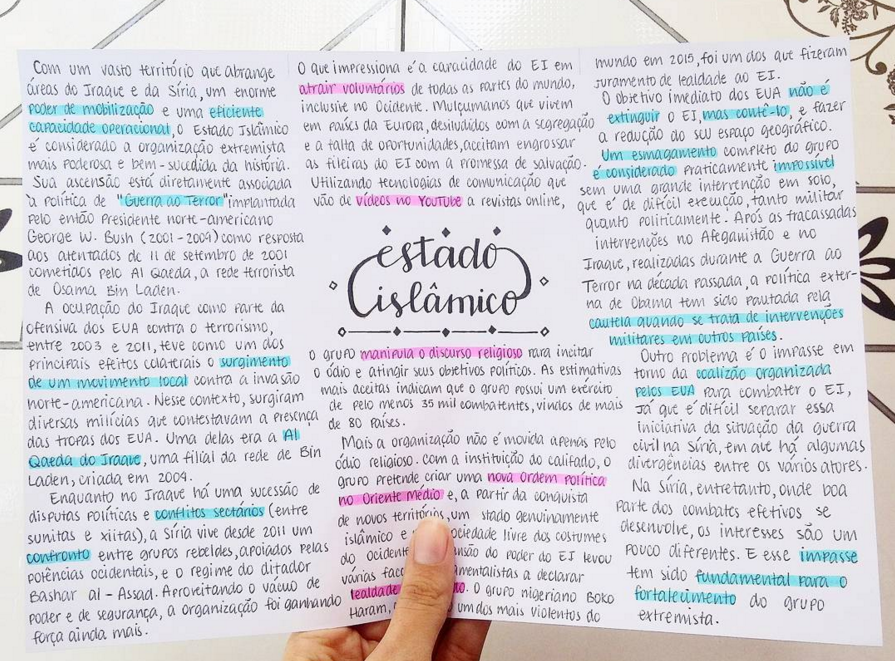 Com um vasto território que abrange
áreas do Iraque e da Síria, um enorme
poder de mobilização e uma eficiente
capacidade operacional, o Estado Islâmico
é considerado a organização extremista
mais poderosa e bem-sucedida da história.
Sua ascensão está diretamente associada
à política de "Guerra ao Terror" implantada
pelo então presidente norte-americano
George W. Bush (2001-2009) como resposta
aos atentados de 11 de setembro de 2001
cometidos pelo Al Qaeda, a rede terrorista
de Osama Bin Laden.
A ocupação do Iraque como parte da
ofensiva dos EUA contra o terrorismo,
entre 2003 e 2011, teve como um dos
principais efeitos colaterais o surgimento
de um movimento local contra a invasão
norte-americana. Nesse contexto, surgiram
diversas milícias que contestavam a presença
das tropas dos EUA. Uma delas era a Al
Qaeda do Iraque, uma filial da rede de Bin
Laden, criada em 2004.
Enquanto no Iraque há uma sucessão de
disputas políticas e conflitos sectários (entre
sunitas e xiitas), a Síria vive desde 2011 um
confronto entre grupos rebeldes, apoiados pelas
potências ocidentais, e o regime do ditador
Bashar al-Assad. Aproveitando o vácuo de
poder e de segurança, a organização foi ganhando
força ainda mais.
O que impressiona é a capacidade do EI em
atrair voluntários de todas as partes do mundo,
inclusive no Ocidente. Mulçumanos que vivem
em países da Europa, desiludidos com a segregação
e a falta de oportunidades, aceitam engrossar
as fileiras do EI com a promessa de salvação.
Utilizando tecnologias de comunicação que
vão de vídeos no YouTube a revistas online,
estado
islâmico
o grupo manipula o discurso religioso para incitar
o ódio e atingir seus objetivos políticos. As estimativas
mais aceitas indicam que o grupo possui um exército
de pelo menos 35 mil combatentes, vindos de mais
de 80 países.
Mais a organização não é movida apenas pelo
ódio religioso. Com a instituição do califado, o
grupo pretende criar uma nova Ordem Política
no Oriente Médio e, a partir da conquista
de novos territórios, um stado genuinamente
islâmico e ociedade livre dos costumes
do ocidente nsão do poder do EI levou
várias fac mentalistas a declarar
lealdade o. O grupo nigeriano Boko
Haram, um dos mais violentos do
mundo em 2015, foi um dos que fizeram
juramento de lealdade ao EI.
O objetivo imediato dos EUA não é
extinguir o EI, mas contê-lo, e fazer
a redução do seu espaço geográfico.
Um esmagamento completo do grupo
é considerado praticamente impossível
sem uma grande intervenção em solo,
que é de difícil execução, tanto militar
quanto politicamente. Após as fracassadas
intervenções no Afeganistão e no
Iraque, realizadas durante a Guerra ao
Terror na década passada, a política exter-
na de Obama tem sido pautada pela
cautela quando se trata de intervenções
militares em outros países.
Outro problema é o impasse em
torno da coalizão organizada
pelos EUA para combater o EI,
já que é difícil separar essa
iniciativa da situação da guerra
civil na Síria, em que há algumas
divergências entre os vários atores.
Na Síria, entretanto, onde boa
parte dos combates efetivos se
desenvolve, os interesses são um
pouco diferentes. E esse impasse
tem sido fundamental para o
fortalecimento do grupo
extremista.